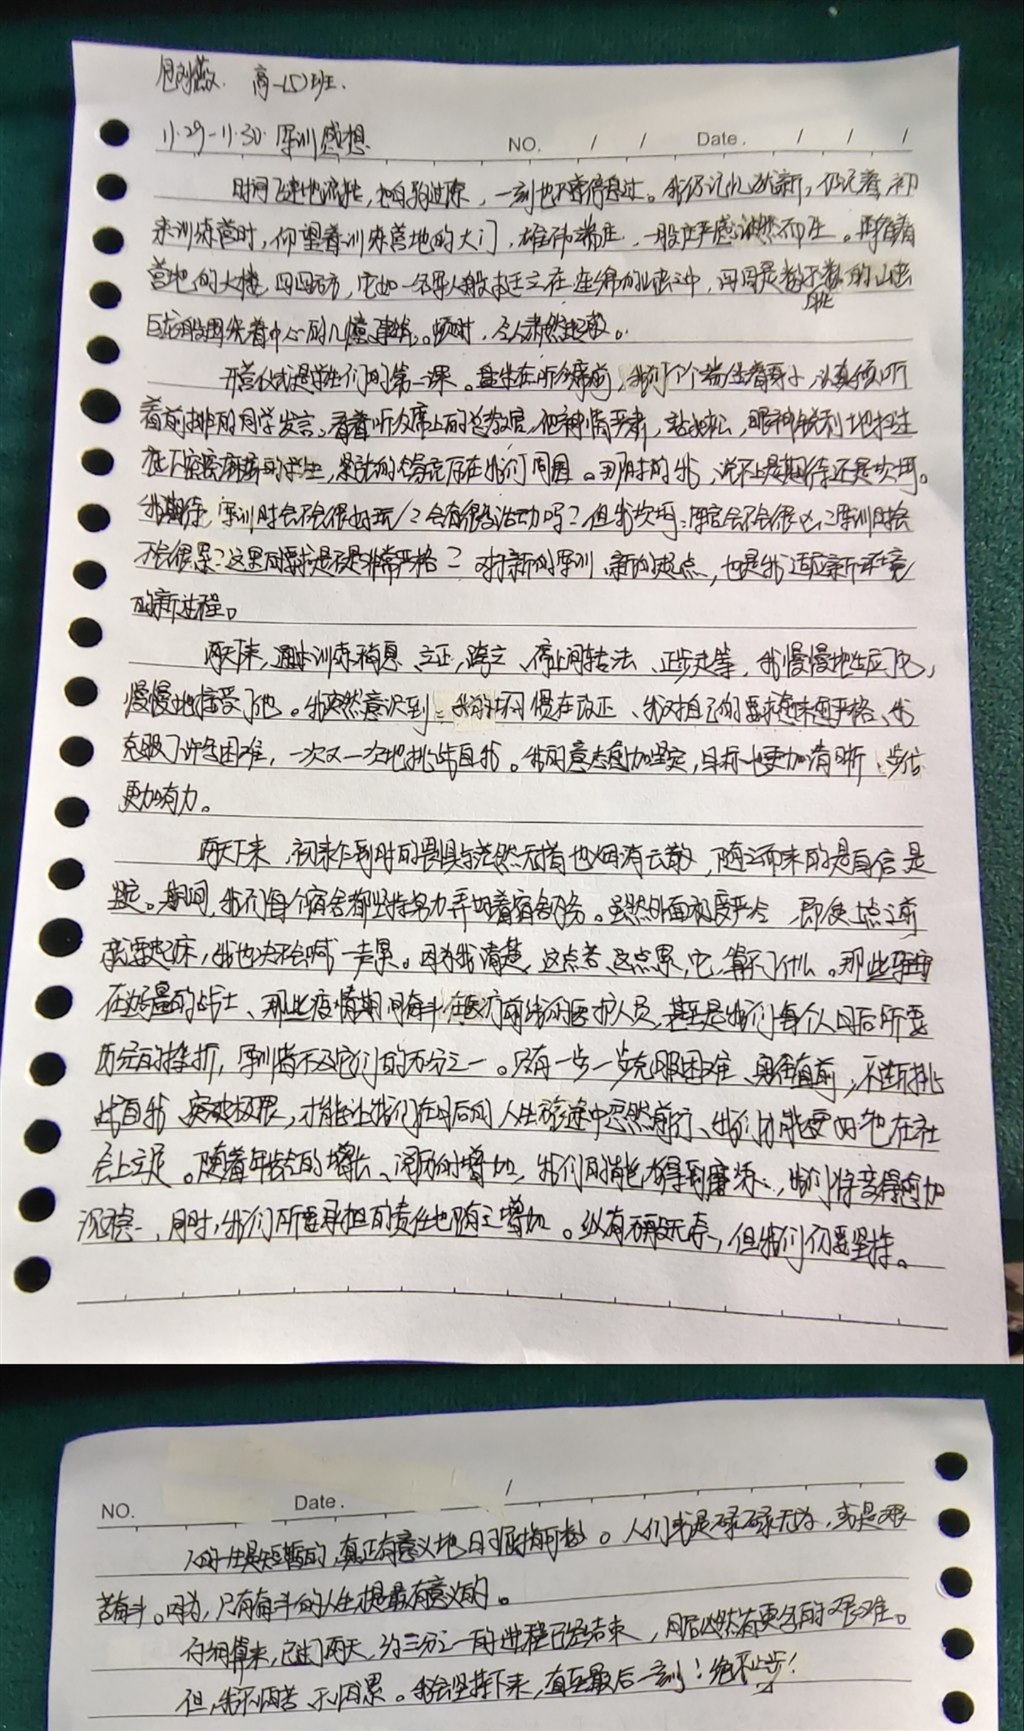 高一(5)班.
11.29-11.30.军训感想
NO. / / Date. / / /
时间飞速地流转,白驹过隙,一刻也不曾停息过。我仍记忆犹新,仍记着,初
来训练营时,仰望着训练营地的大门,雄伟端庄,一股庄严感油然而生。再看着
营地的大楼,四四方方,它如一名军人般挺立在连绵的山峦之中,四周是数不数的山峦
巨龙般围绕着中心的几幢建筑。顿时,令人肃然起敬。
开营仪式是学生们的第一课。盘坐在听众席前,我们个个端坐着身子,认真倾听
着前排的同学发言。看着听众席上的总教官,他神情严肃,站如松,眼神锐利地扫过
底下密密麻麻的学生,紧张的气氛存在我们周围。那时的我,说不上是期待还是坎坷。
我期待:军训时会不会很好玩?会有很多活动吗?但我坎坷:军官会不会很凶?军训时会
不会很累?这里的要求是不是非常严格?对于新的军训、新的起点,也是我适应新环境
的新进程。
两天下来,通过训练稍息、立正,跨立、停止间转法、正步走等,我慢慢地适应了它,
慢慢地接受了他。我突然意识到:我的坏习惯在改正、我对自己的要求越来越严格、我
克服了许多困难,一次又一次地挑战自我。我的意志愈加坚定,目标也更加清晰、步伐
更加有力。
两天下来,初来乍到时的畏惧与茫然无措也烟消云散,随之而来的是自信是
坚定。期间,我们每个宿舍都坚持努力弄好着宿舍内务。虽然外面初度严冷,即使六点之前
就要起床,我也决不会喊一声累。因为我清楚,这点苦、这点累,它,算不了什么。那些驻守
在边疆的战士、那些疫情期间奋斗在医疗前线的医护人员,甚至是我们每个人日后所要
历经的挫折,军训着不及它们的万分之一。只有一步一步克服困难、勇往直前,不断挑
战自我、突破极限,才能让我们在日后的人生旅途中忍然前行、我们才能更好地在社
会上立足。随着年龄的增长、阅历的增加,我们的心智也得到磨炼,我们将变得愈加
沉稳,同时,我们所要承担的责任也随之增加。纵有万般无奈,但我们仍要坚持。
NO. Date. /
人的一生是短暂的,真正有意义地日子屈指可数。人们或是碌碌无为,或是艰
苦奋斗。因为,只有奋斗的人生才是最有意义的。
仔细算来,已过两天,约三分之一的进程已经结束,日后必然有更多的艰难。
但,我不怕苦、不怕累。我会坚持下来,直至最后一刻!绝不止步!